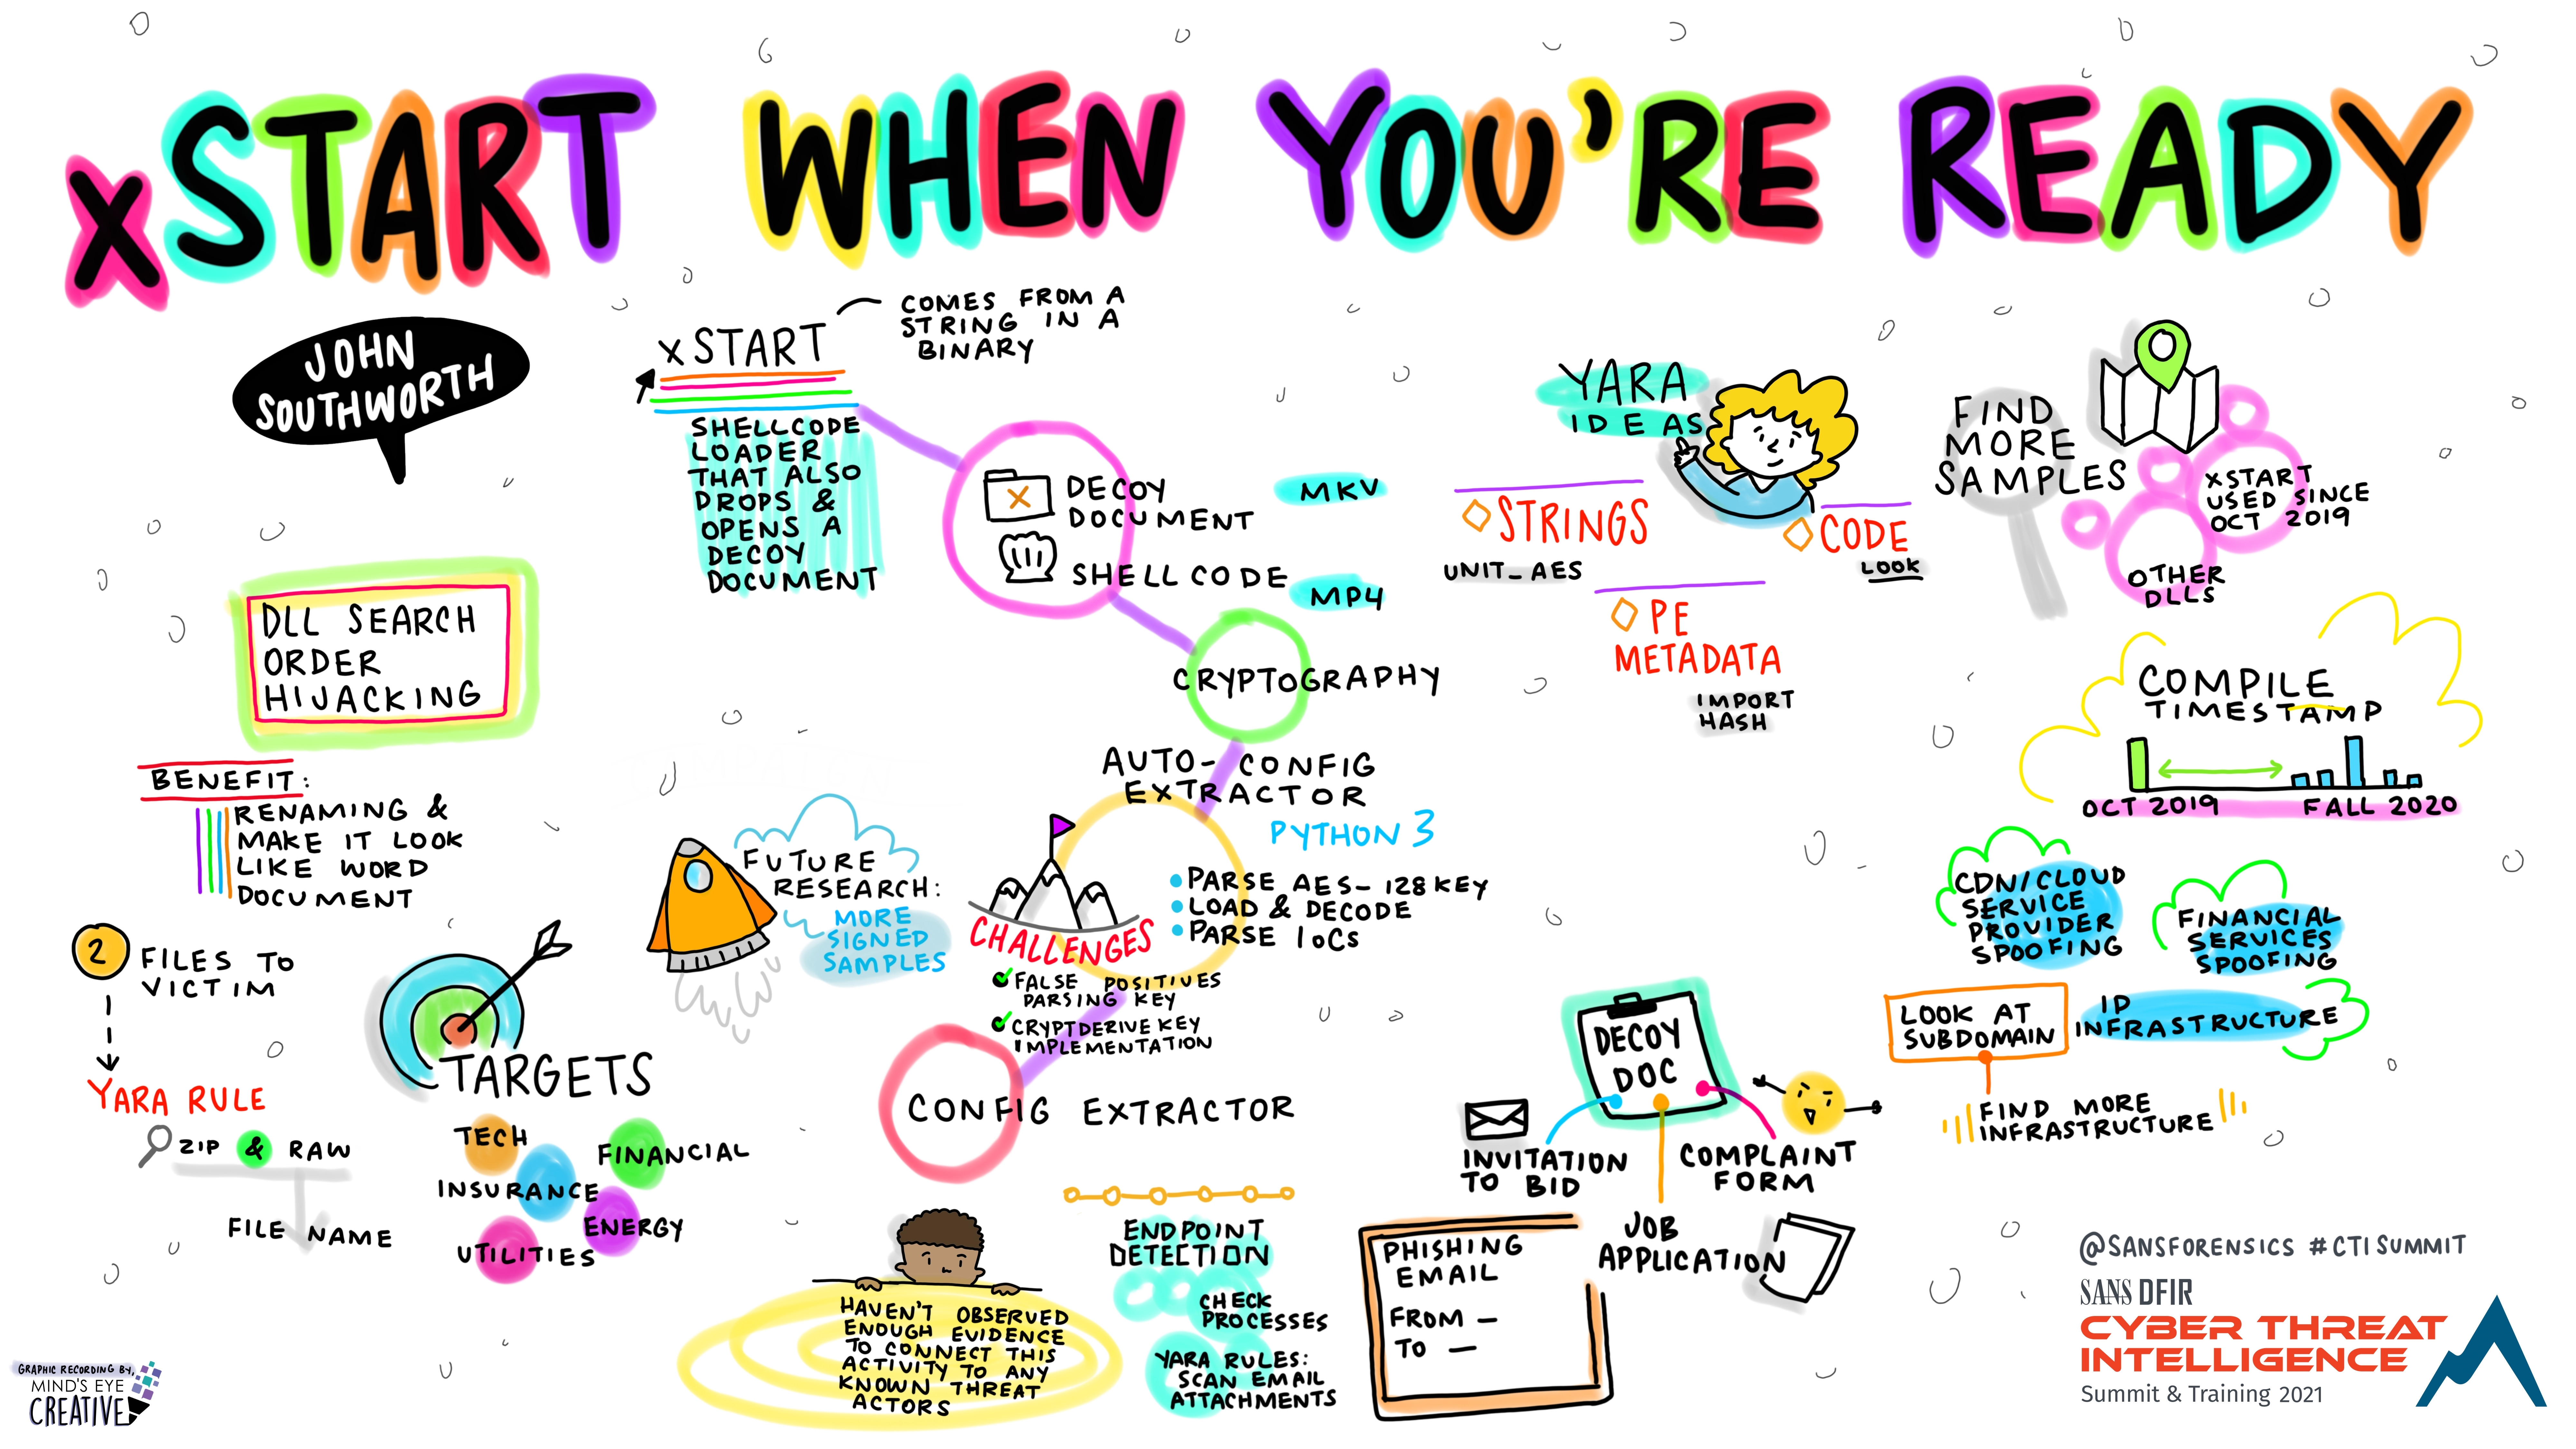 xSTART WHEN YOU'RE READY
JOHN
SOUTHWORTH
DLL SEARCH
ORDER
HIJACKING
BENEFIT:
RENAMING &
MAKE IT LOOK
LIKE WORD
DOCUMENT
2
FILES TO
VICTIM
YARA RULE
ZIP & RAW
FILE NAME
TARGETS
TECH
FINANCIAL
INSURANCE
ENERGY
UTILITIES
xSTART
COMES FROM A
STRING IN A
BINARY
SHELLCODE
LOADER
THAT ALSO
DROPS &
OPENS A
DECOY
DOCUMENT
DECOY
DOCUMENT
MKV
SHELLCODE
MP4
CRYPTOGRAPHY
AUTO-CONFIG
EXTRACTOR
PYTHON 3
PARSE AES-128 KEY
LOAD & DECODE
PARSE IOCs
CHALLENGES
FALSE POSITIVES
PARSING KEY
CRYPTDERIVEKEY
IMPLEMENTATION
FUTURE
RESEARCH:
MORE
SIGNED
SAMPLES
CONFIG EXTRACTOR
HAVEN'T OBSERVED
ENOUGH EVIDENCE
TO CONNECT THIS
ACTIVITY TO ANY
KNOWN THREAT
ACTORS
ENDPOINT
DETECTION
CHECK
PROCESSES
YARA RULES:
SCAN EMAIL
ATTACHMENTS
YARA
IDEAS
STRINGS
UNIT_AES
CODE
LOOK
PE
METADATA
IMPORT
HASH
FIND
MORE
SAMPLES
XSTART
USED SINCE
OCT 2019
OTHER
DLLS
COMPILE
TIMESTAMP
OCT 2019
FALL 2020
CDN/CLOUD
SERVICE
PROVIDER
SPOOFING
FINANCIAL
SERVICES
SPOOFING
LOOK AT
SUBDOMAIN
IP
INFRASTRUCTURE
FIND MORE
INFRASTRUCTURE
DECOY
DOC
INVITATION
TO BID
COMPLAINT
FORM
JOB
APPLICATION
PHISHING
EMAIL
FROM —
TO —
@SANSFORENSICS #CTISUMMIT
SANS DFIR
CYBER THREAT
INTELLIGENCE
Summit & Training 2021
GRAPHIC RECORDING BY,
MIND'S EYE
CREATIVE